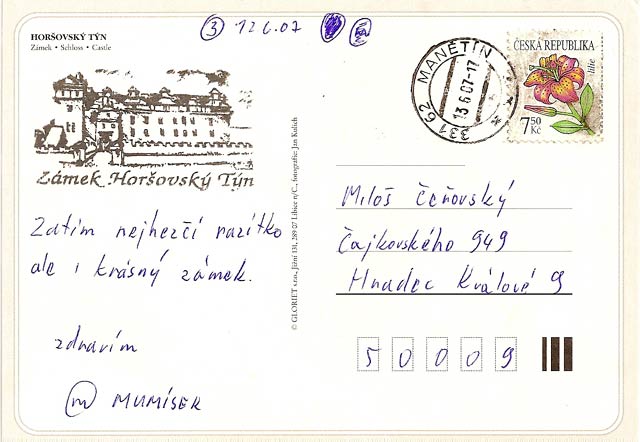 HORŠOVSKÝ TÝN
Zámek • Schloss • Castle
3 12 6.07
MANĚTÍN
13.6.07-17
331 62
ČESKÁ REPUBLIKA
lilie
7 50 Kč
Zámek Horšovský Týn
Zatím nejhezčí razítko
ale i krásný zámek.
zdravím
m MUMÍSEK
© GLORIET s.r.o., Jižní 131, 289 07 Libice n/C., fotografie: Jan Kulich
Miloš Čeňovský
Čajkovského 949
Hradec Králové 9
5 0 0 0 9